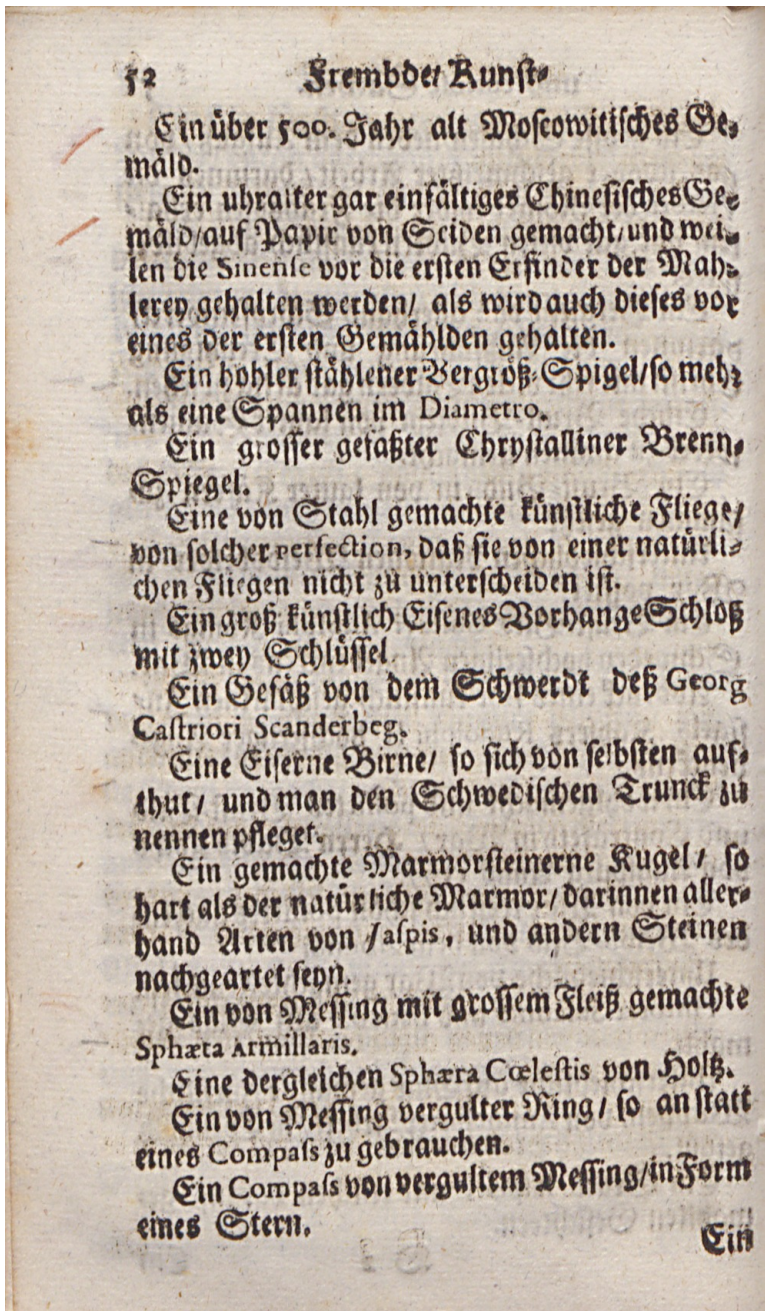 52 Frembde/ Kunst-
Ein über 500. Jahr alt Moscowitisches Ge-
mäld.
Ein uhralter gar einfältiges Chinesisches Ge-
mäld/auf Papir von Seiden gemacht/und wei-
len die Sinense vor die ersten Erfinder der Mah-
lerey gehalten werden/ als wird auch dieses vor
eines der ersten Gemählden gehalten.
Ein hohler stählener Vergröß-Spigel/so mehr
als eine Spannen im Diametro.
Ein grosser gefaßter Chrystalliner Brenn-
Spiegel.
Eine von Stahl gemachte künstliche Fliege/
von solcher perfection, daß sie von einer natürli-
chen Fliegen nicht zu unterscheiden ist.
Ein groß künstlich Eisenes Vorhange Schloß
mit zwey Schlüssel.
Ein Gefäß von dem Schwerdt deß Georg
Castriori Scanderbeg.
Eine Eiserne Birne/ so sich von selbsten auf-
thut/ und man den Schwedischen Trunck zu
nennen pfleget.
Ein gemachte Marmorsteinerne Kugel/ so
hart als der natürliche Marmor/darinnen aller-
hand Arten von Jaspis, und andern Steinen
nachgeartet seyn.
Ein von Messing mit grossem Fleiß gemachte
Sphæra Armillaris.
Eine dergleichen Sphæra Cœlestis von Holtz.
Ein von Messing vergulter Ring/ so an statt
eines Compass zu gebrauchen.
Ein Compass von vergultem Messing/in Form
eines Stern.
Ein